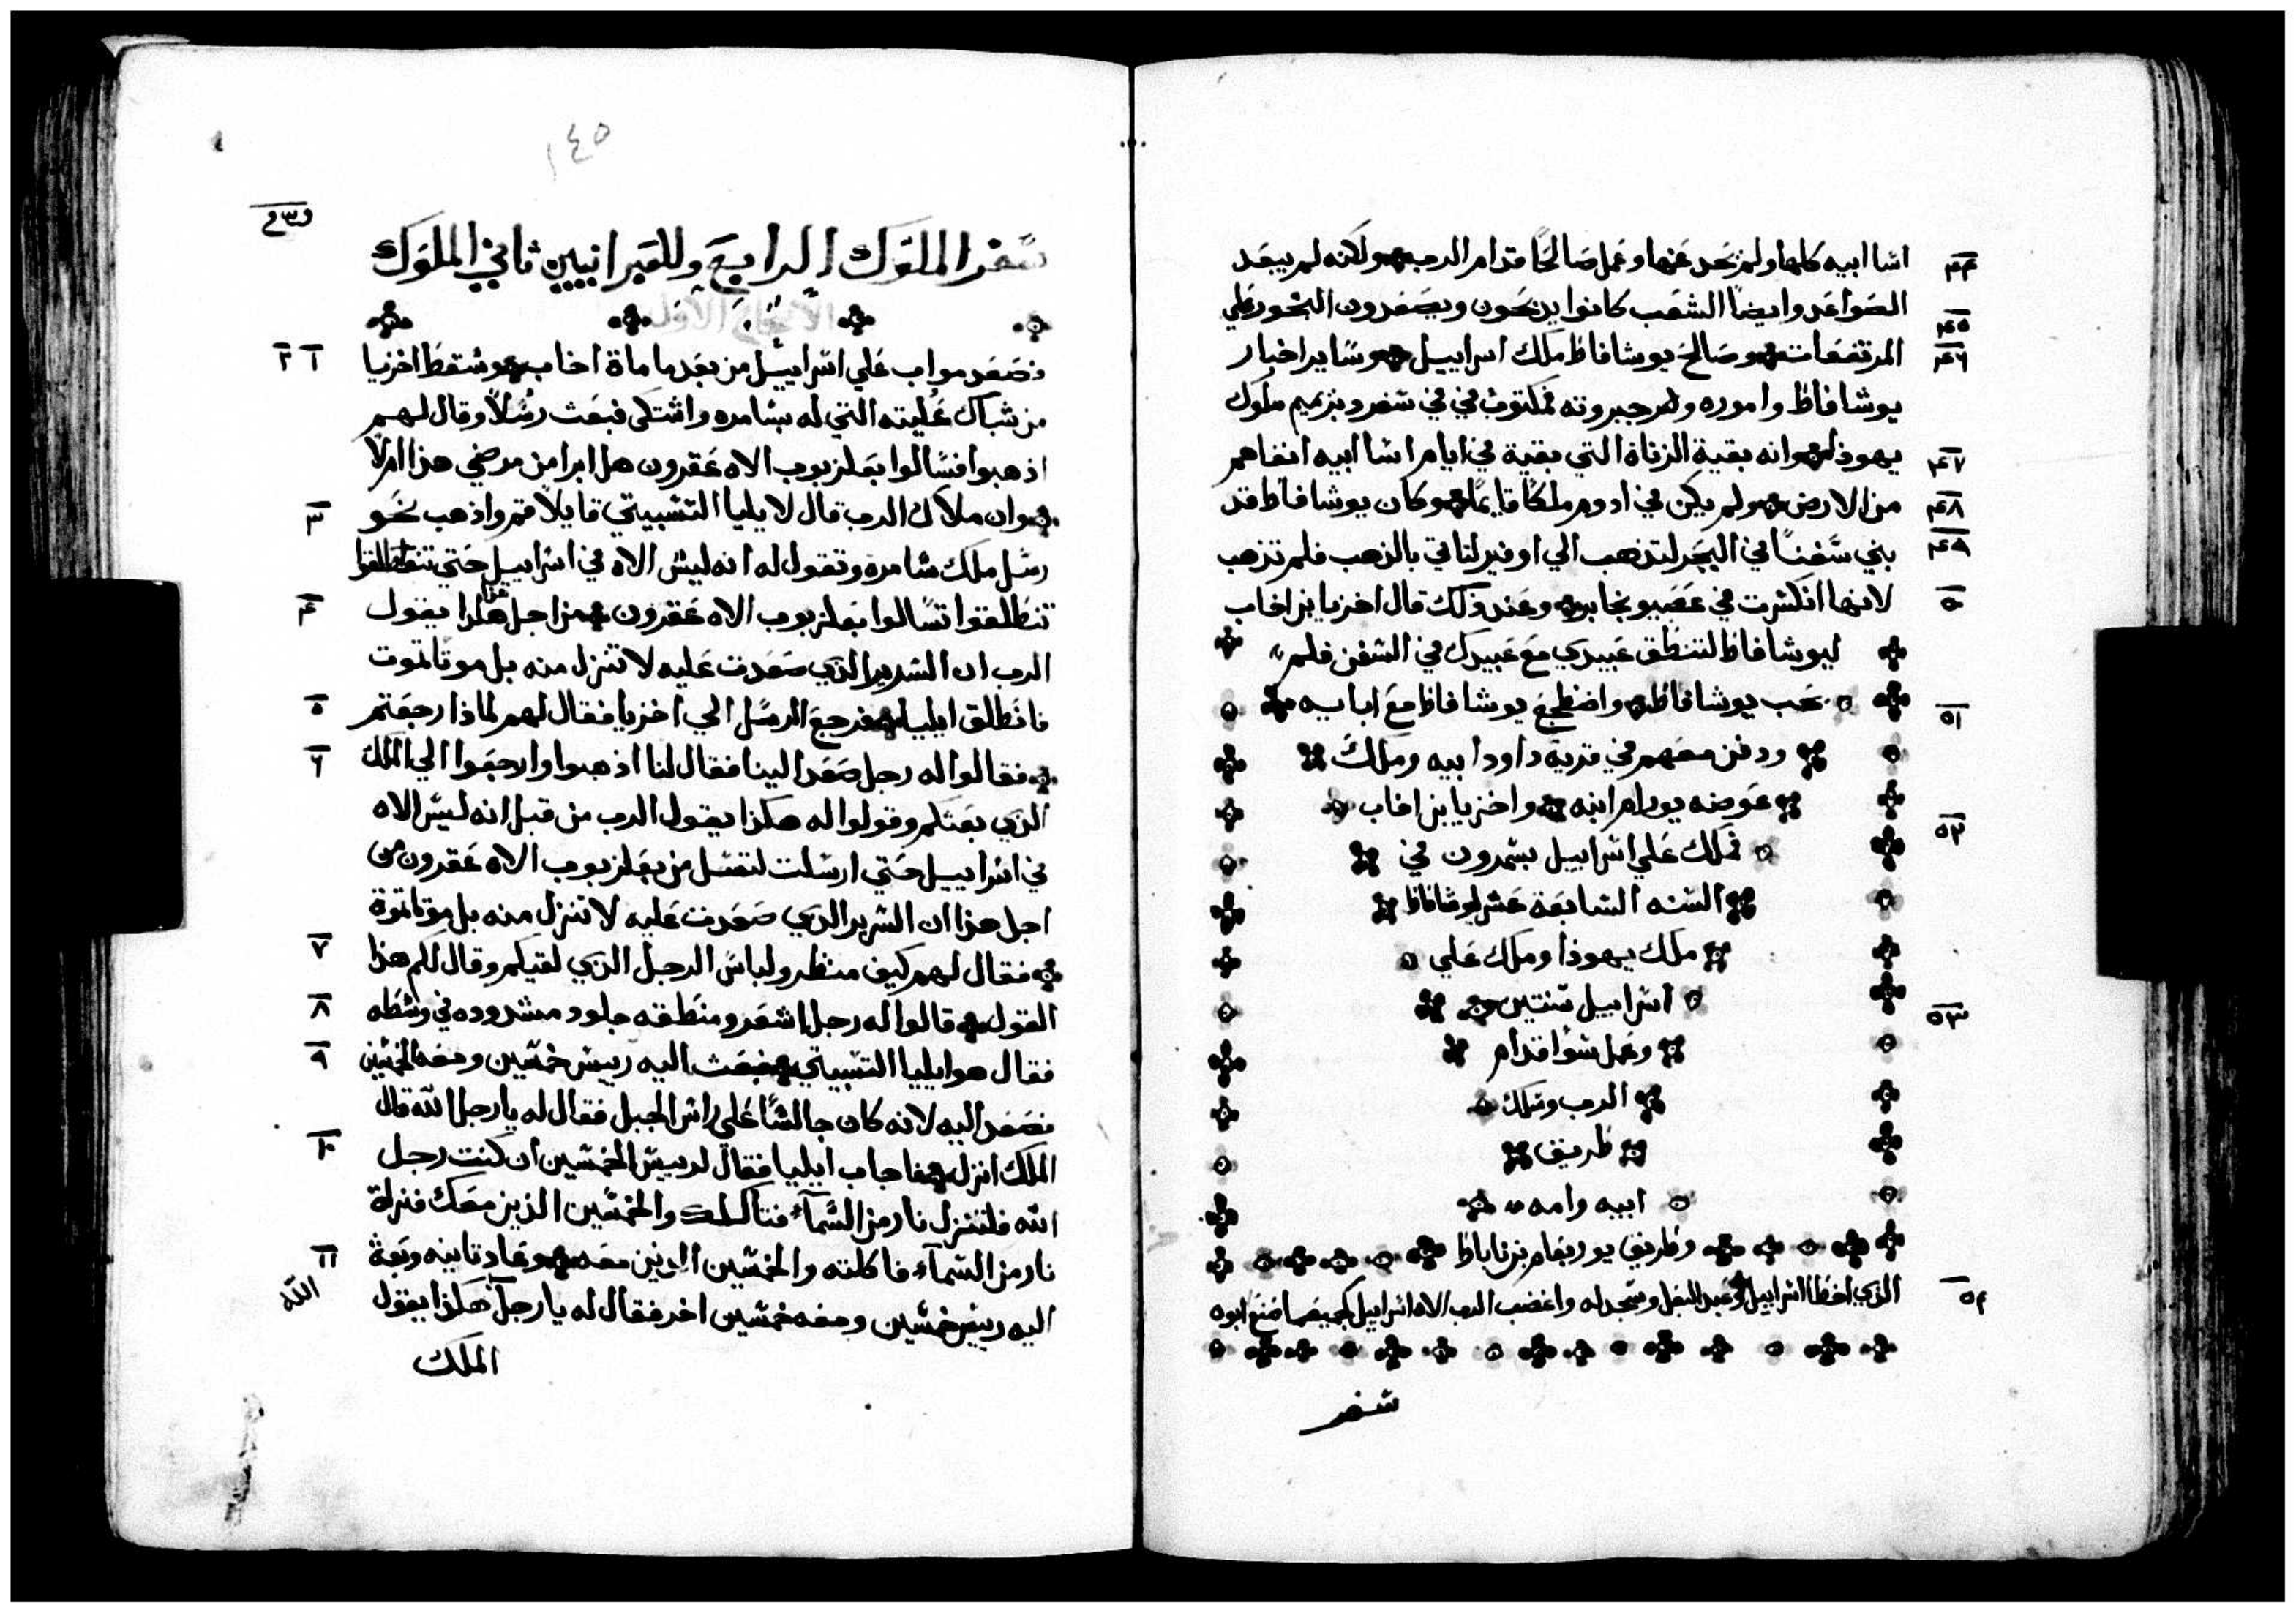 اسا ابيه كلها ولم يحد عنها وعمل صالحًا قدام الرب ولكنه لم يبعد ٤٣
الصواعد وايضاً الشعب كانوا يذبحون ويصعدون البخور علي
المرتفعات وصالح يوشافاط ملك اسراييل وساير اخبار ٤٥ ٤٦
يوشافاط واموره وجبروته مكتوب في في سفر دبرميم ملوك
يهوذا وانه بقية الزناة التي بقية في ايام اسا ابيه انفاهم ٤٧
من الارض ولم يكن في ادوم ملكًا قايمًا وكان يوشافاط قد ٤٨
بني سفناً في البحر لتذهب الي اوفير لتاتي بالذهب فلم تذهب ٤٩
لانها انكسرت في عصيون جابر وعند ذلك قال اخزيا بن اخاب ٥٠
ليوشافاط لتنطلق عبيدي مع عبيدك في السفن فلم
يحب يوشافاط واضطجع يوشافاط مع ابايه ٥١
ودفن معهم في قرية داود ابيه وملك
عوضه يورام ابنه واخزيا بن اخاب ٥٢
فملك علي اسراييل بسمرون في
السنه السابعة عشر ليوشافاط
ملك يهوذا وملك علي
اسراييل سنتين
وعمل سوًا قدام ٥٣
الرب وسلك
طريق
ابيه وامه
وطريق يوربعام بن ناباط
الذي اخطا اسراييل وعبد البعل وسجد له واغضب الرب الاه اسراييل كجميع ما صنع ابوه ٥٤
سفر
١٤٥
سفر الملوك الرابع وللعبرانيين ثاني الملوك
الاصحاح الاول
فصعد مواب علي اسراييل من بعد ما ماة اخاب وسقط اخزيا ١ ٢
من شباك عُليته التي له بسامره واشتكى فبعث رسُلاً وقال لهم
اذهبوا فسالوا بعلزبوب الاه عقرون هل ابرا من مرضي هذا ام لا
وان ملاك الرب قال لايليا التشبيتي قايلاً قم واذهب نحو ٣
رسل ملك سامره وتقول له انه ليس الاه في اسراييل حتي تنطلقوا
تنطلقوا تسالوا بعلزبوب الاه عقرون من اجل هذا هكذا يقول ٤
الرب ان السرير الذي صعدت عليه لا تنزل منه بل موتا تموت
فانطلق ايليا فرجع الرسل الي اخزيا فقال لهم لماذا رجعتم ٥
فقالوا له رجل صعد الينا فقال لنا اذهبوا وارجعوا الي الملك ٦
الذي بعثكم وقولوا له هكذا يقول الرب من قبل انه ليس الاه
في اسراييل حتي ارسلت لتسل من بعلزبوب الاه عقرون من
اجل هذا ان السرير الذي صعدت عليه لا تنزل منه بل موتا تموة
فقال لهم كيف منظر ولباس الرجل الذي لقيكم وقال لكم هذا ٧
القول قالوا له رجل اشعر ومنطقه جلود مشدوده في وسطه ٨
فقال هو ايليا التشبيتي فبعث اليه رييس خمسين ومعه الخمسين ٩
فصعد اليه لانه كان جالسًا علي راس الجبل فقال له يا رجل الله قال
الملك انزل فاجاب ايليا فقال لرييس الخمسين ان كنت رجل ١٠
الله فلتنزل نار من السمآء فتاكلك والخمسين الذين معك فنزلة
نار من السمآء فاكلته والخمسين الذين معه وعاد ثانيه وبعث ١١
اليه رييس خمسين ومعه خمسين اخر فقال له يا رجل هكذا يقول الله
الملك